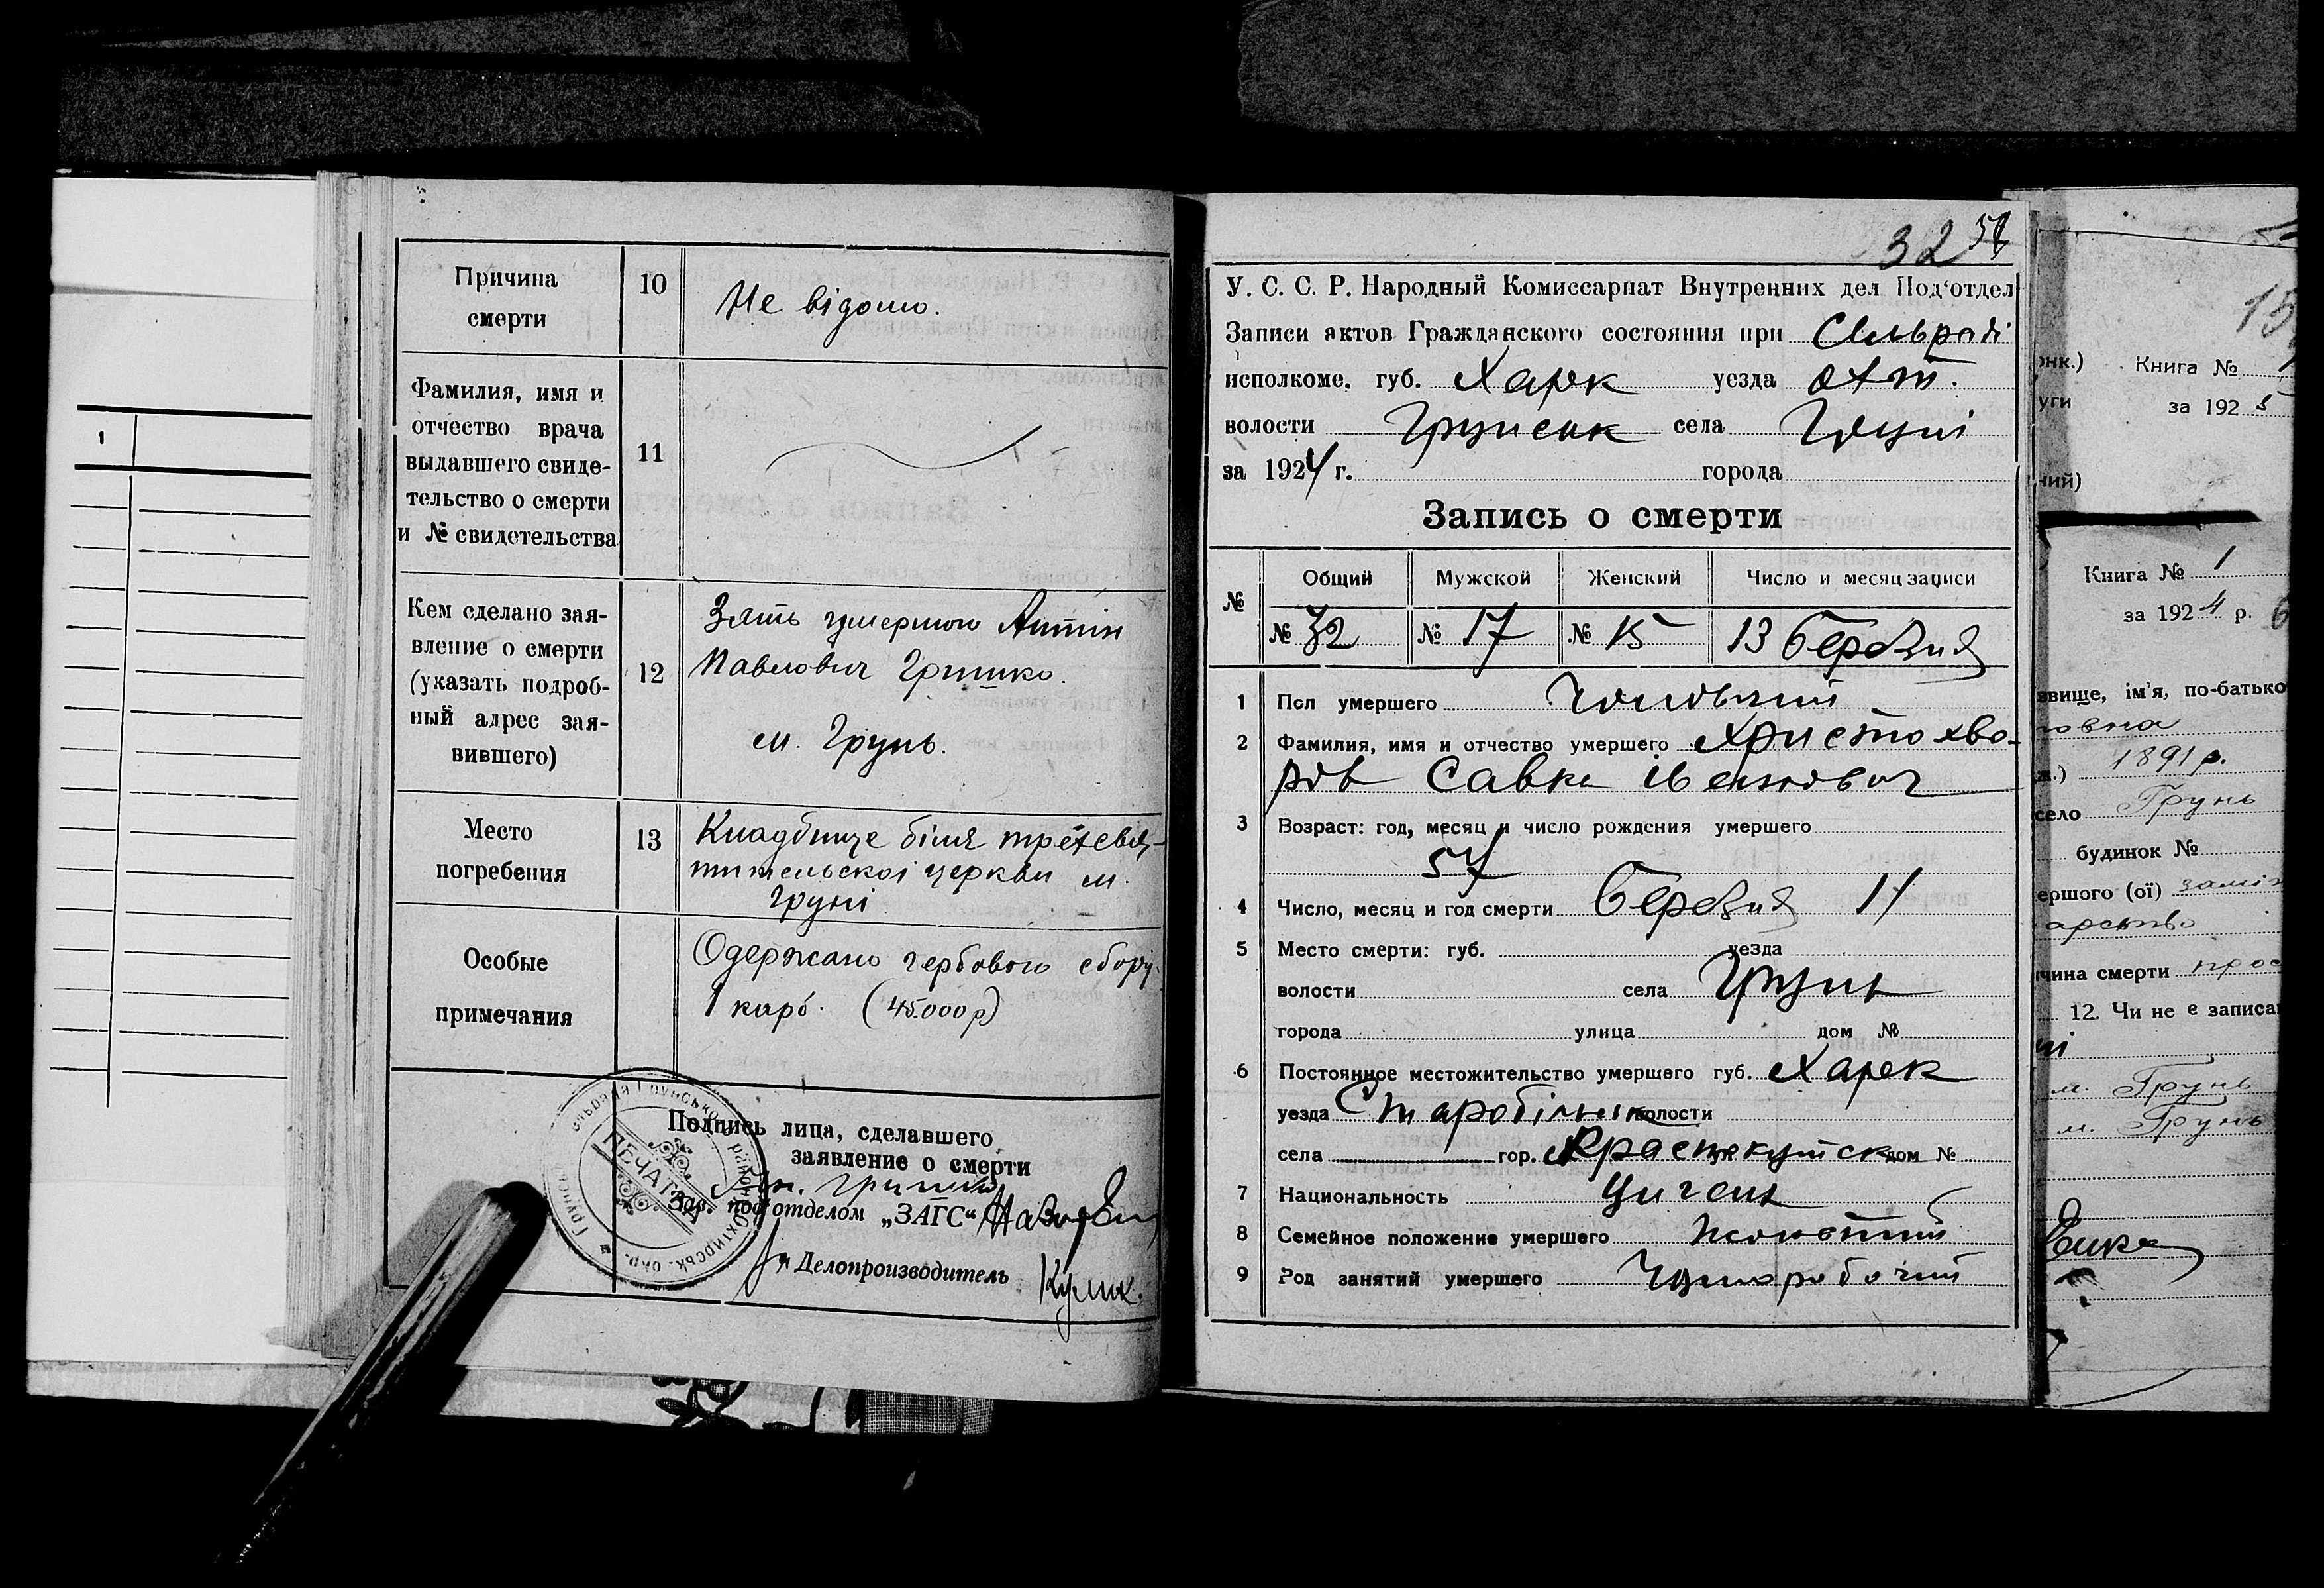 1
Причина
смерти
10
Не відомо.
Фамилия, имя и
отчество врача
выдавшего свиде-
тельство о смерти
и № свидетельства
11
Кем сделано зая-
вление о смерти
(указать подроб-
ный адрес зая-
вившего)
12
Зять умершого Антін
Павлович Гришко.
м. Грунь.
Место
погребения
13
Кладбище біля трехсвя-
тительскоі церкви м.
Груні
Особые
примечания
Одержано гербового сбору
1 карб. (45.000 р)
Подпись лица, сделавшего
заявление о смерти
Ан. Гришко
Зав. под'отделом „ЗАГС“
Делопроизводитель Кулик.
ПЕЧАТКА
32 51
У. С. С. Р. Народный Комиссариат Внутренних дел Под'отдел
Записи актов Гражданского состояния при Сільраді
исполкоме. губ. Харк уезда Охт.
волости Грунськ села Груні
за 1924 г. города
Запись о смерти
№
Общий Мужской Женский Число и месяц записи
№ 32 № 17 № 15 13 березня
1 Пол умершего Чоловічий
2 Фамилия, имя и отчество умершего Христохво-
ров Савка Іванович
3 Возраст: год, месяц и число рождения умершего
57
4 Число, месяц и год смерти березня 11
5 Место смерти: губ. уезда
волости села Грунь
города улица дом №
6 Постоянное местожительство умершего губ. Харьк
уезда Старобільськ волости
села гор. Краснокутск дом №
7 Национальность Циган
8 Семейное положение умершего Жонатий
9 Род занятий умершего Чорноробочий
онк.) Книга №
уги за 1925
ний)
Книга № 1
за 1924 р. 6
звище, ім'я, по-батько
овна
1891 р.
село Грунь
будинок №
ершого (ої) заміж
арство
чина смерти
12. Чи не є записа
м. Грунь
м. Грунь